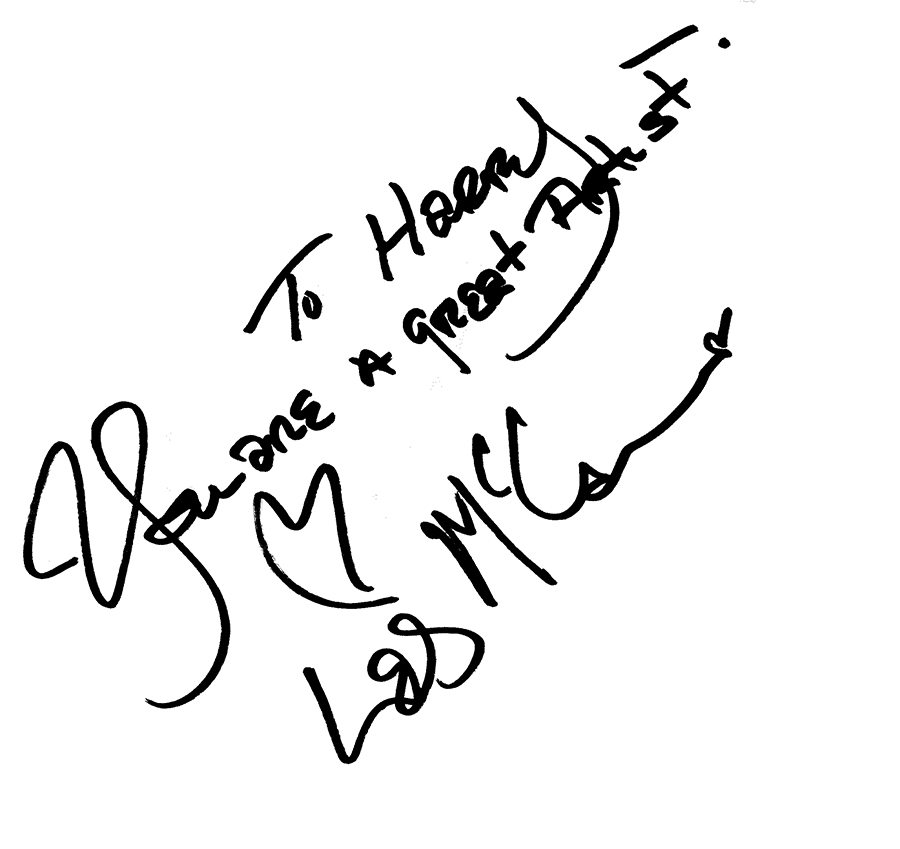 To Harry
You are A GREAT Artist!
Les McCann